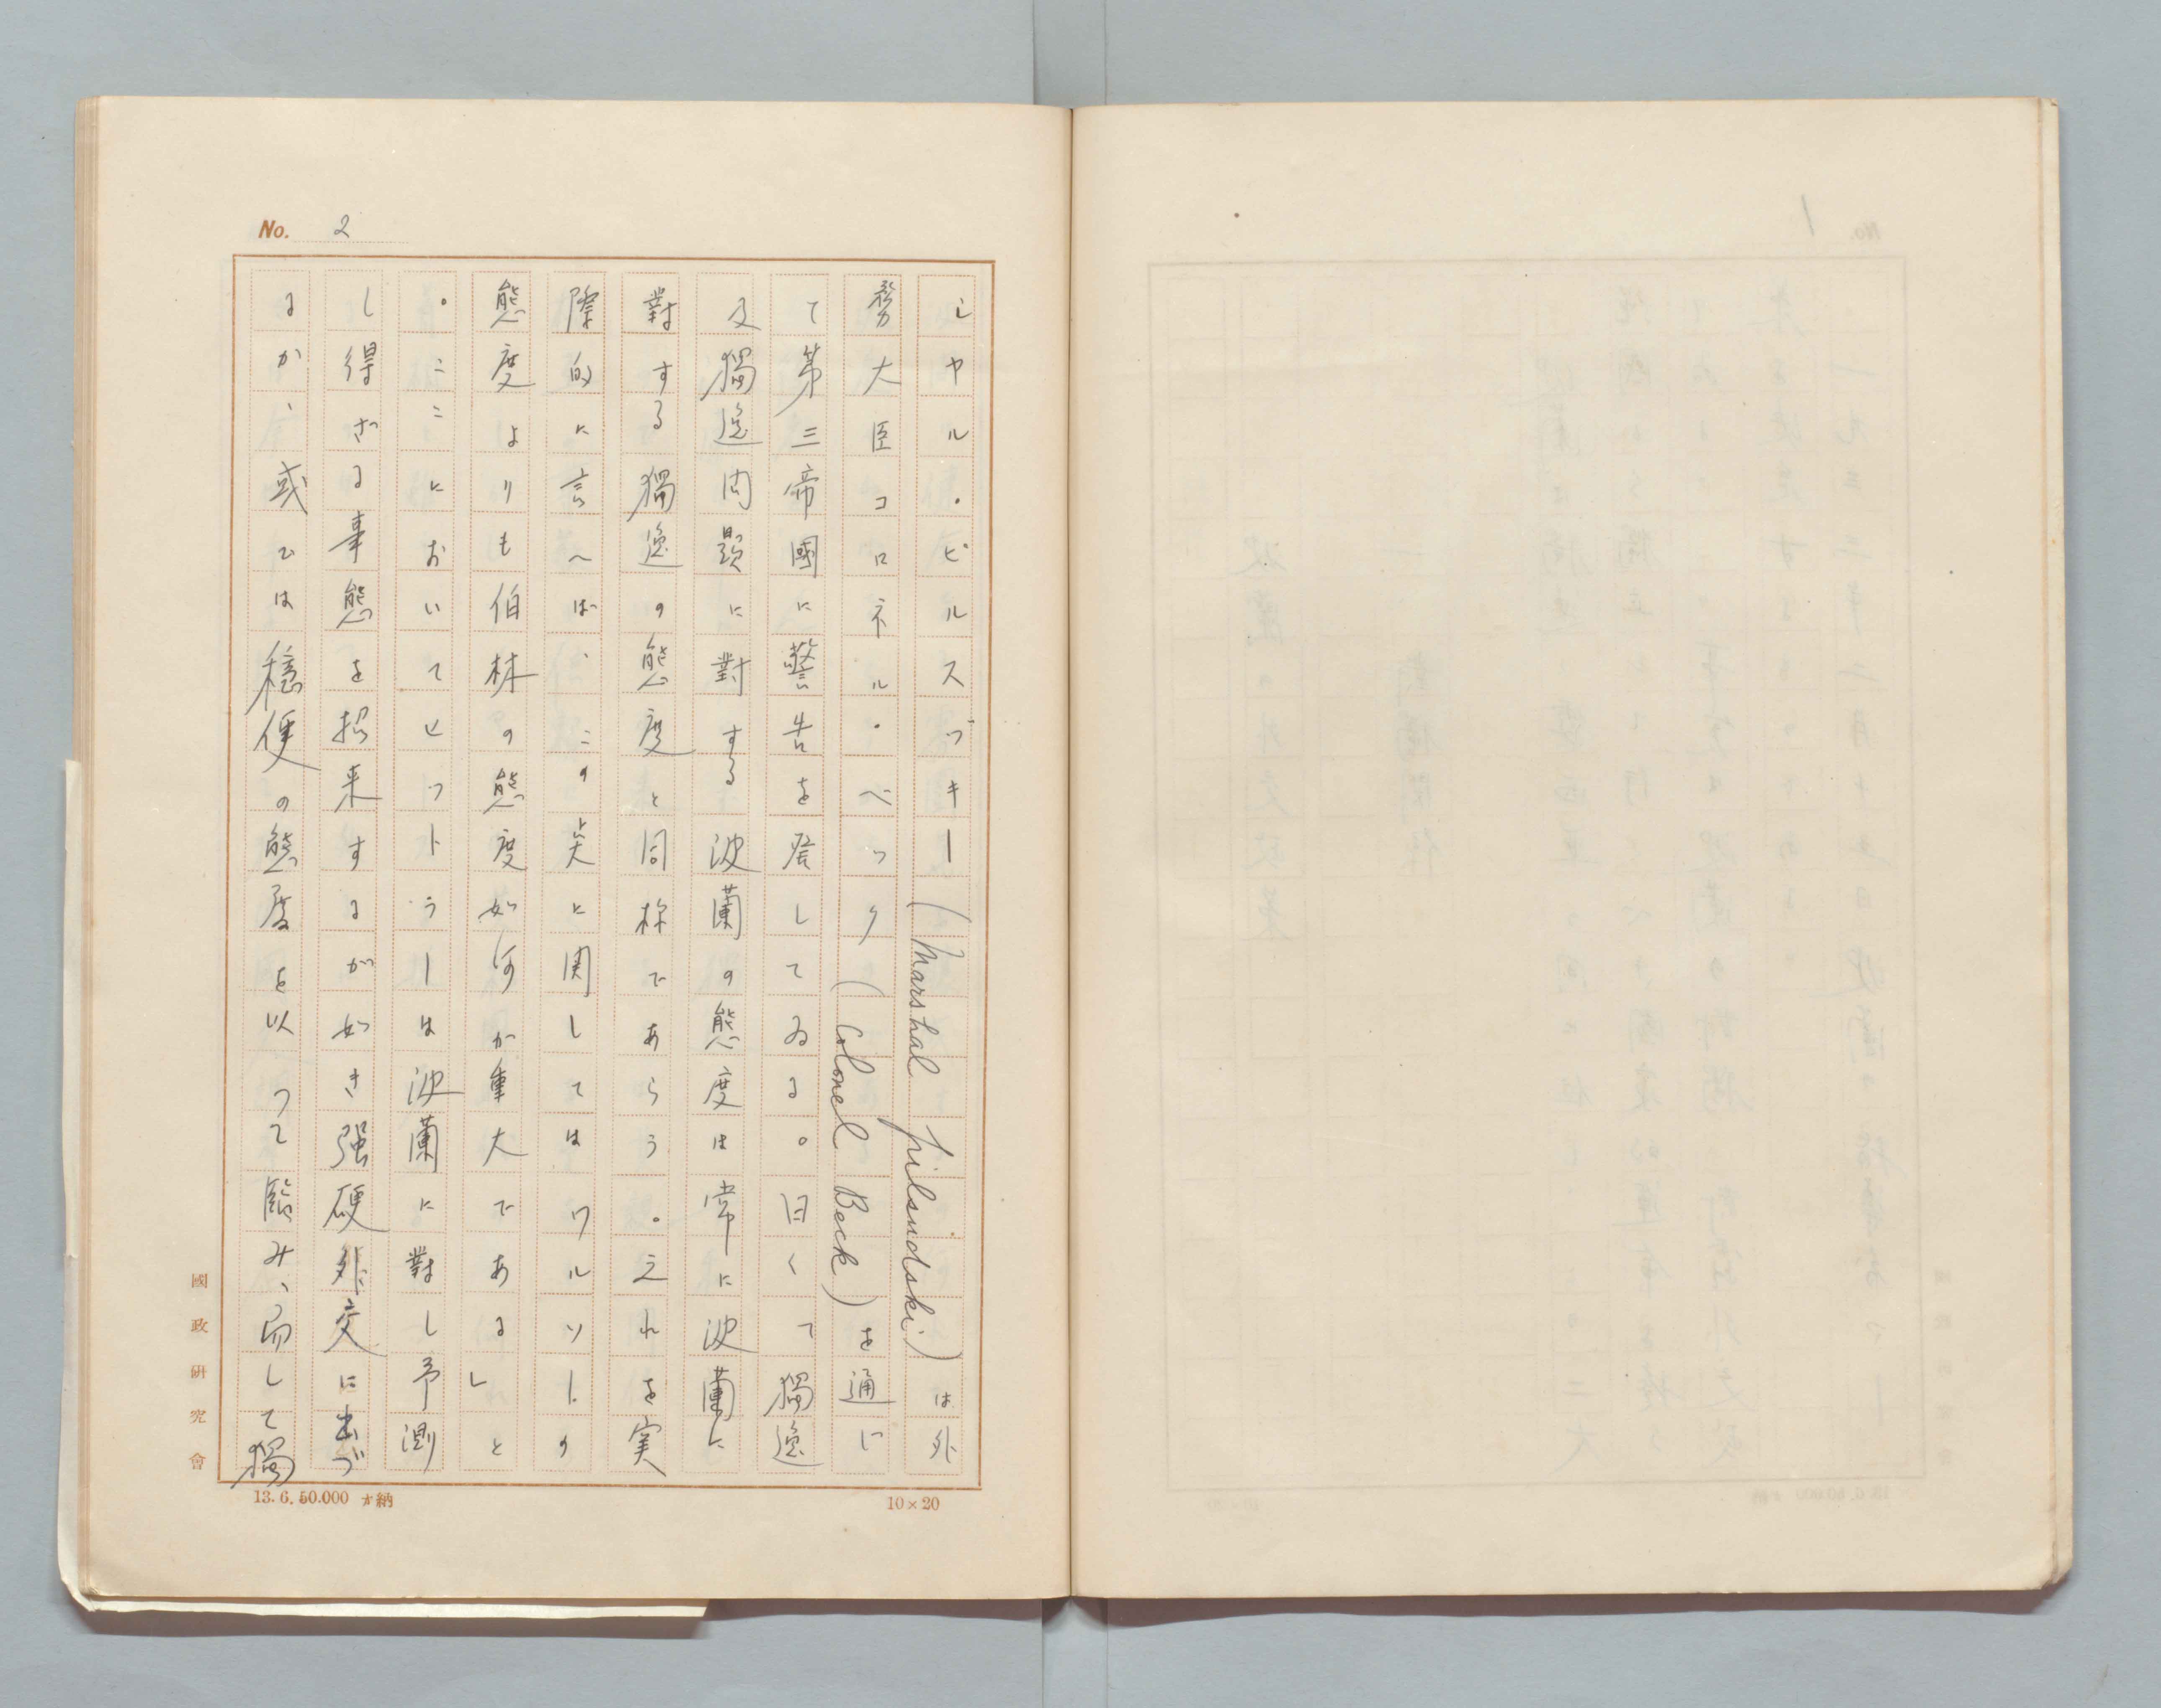 No. 2
シヤル・ピルスヅキー(Marshal Pilsudski)は外
務大臣コロネル・ベック(Colonel Beck)を通じ
て第三帝國に警告を発してゐる。曰くて獨逸
及獨逸問題に對する波蘭の態度は常に波蘭に
對する獨逸の態度と同様であらう。之れを実
際的に言へば、この点に関してはワルソーの
態度よりも伯林の態度如何が重大である」と
。ここにおいてヒットラーは波蘭に對し予測
し得ざる事態を招来するが如き强硬外交に出づ
るか、或ひは穏便の態度を以つて臨み、而して獨
國政研究會
13.6.50.000 才納
10×20
1